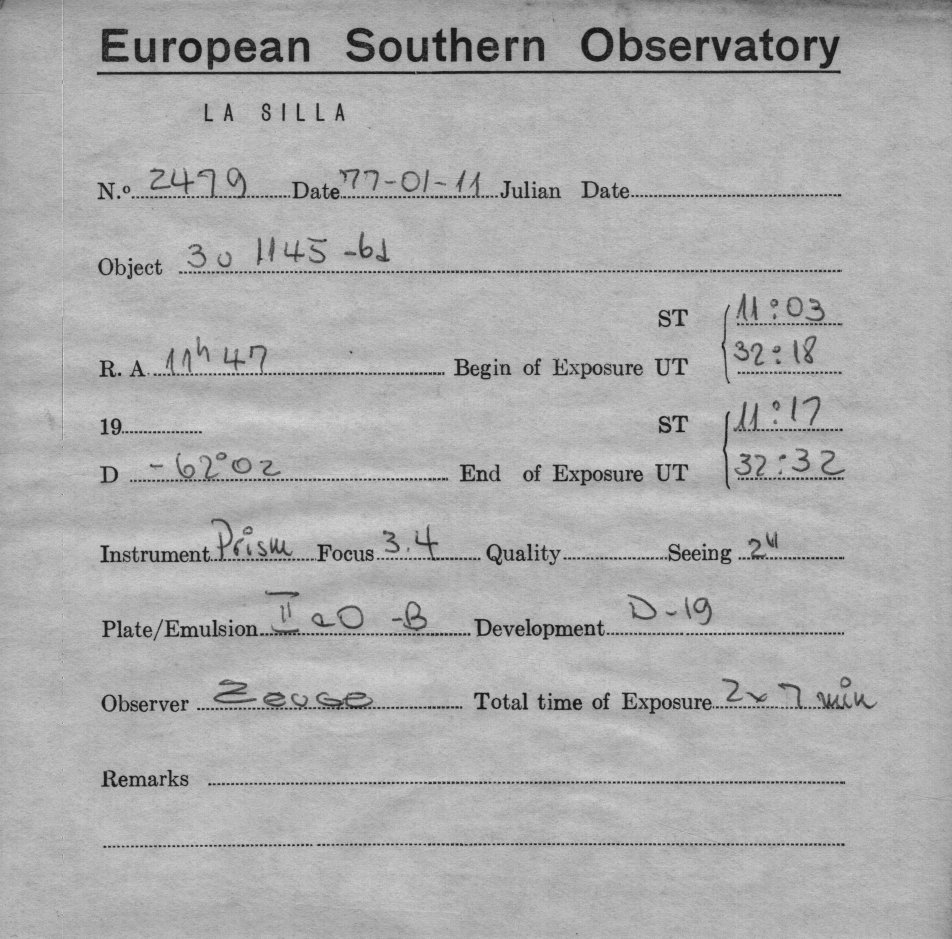 European Southern Observatory
LA SILLA
N.º 2479 Date 77-01-11 Julian Date
Object 3U 1145-61
ST 11:03
R. A 11h 47 Begin of Exposure UT 32:18
19 ST 11:17
D -62°02 End of Exposure UT 32:32
Instrument Prism Focus 3.4 Quality Seeing 2"
Plate/Emulsion IIaO-B Development D-19
Observer Total time of Exposure 2x7 min
Remarks